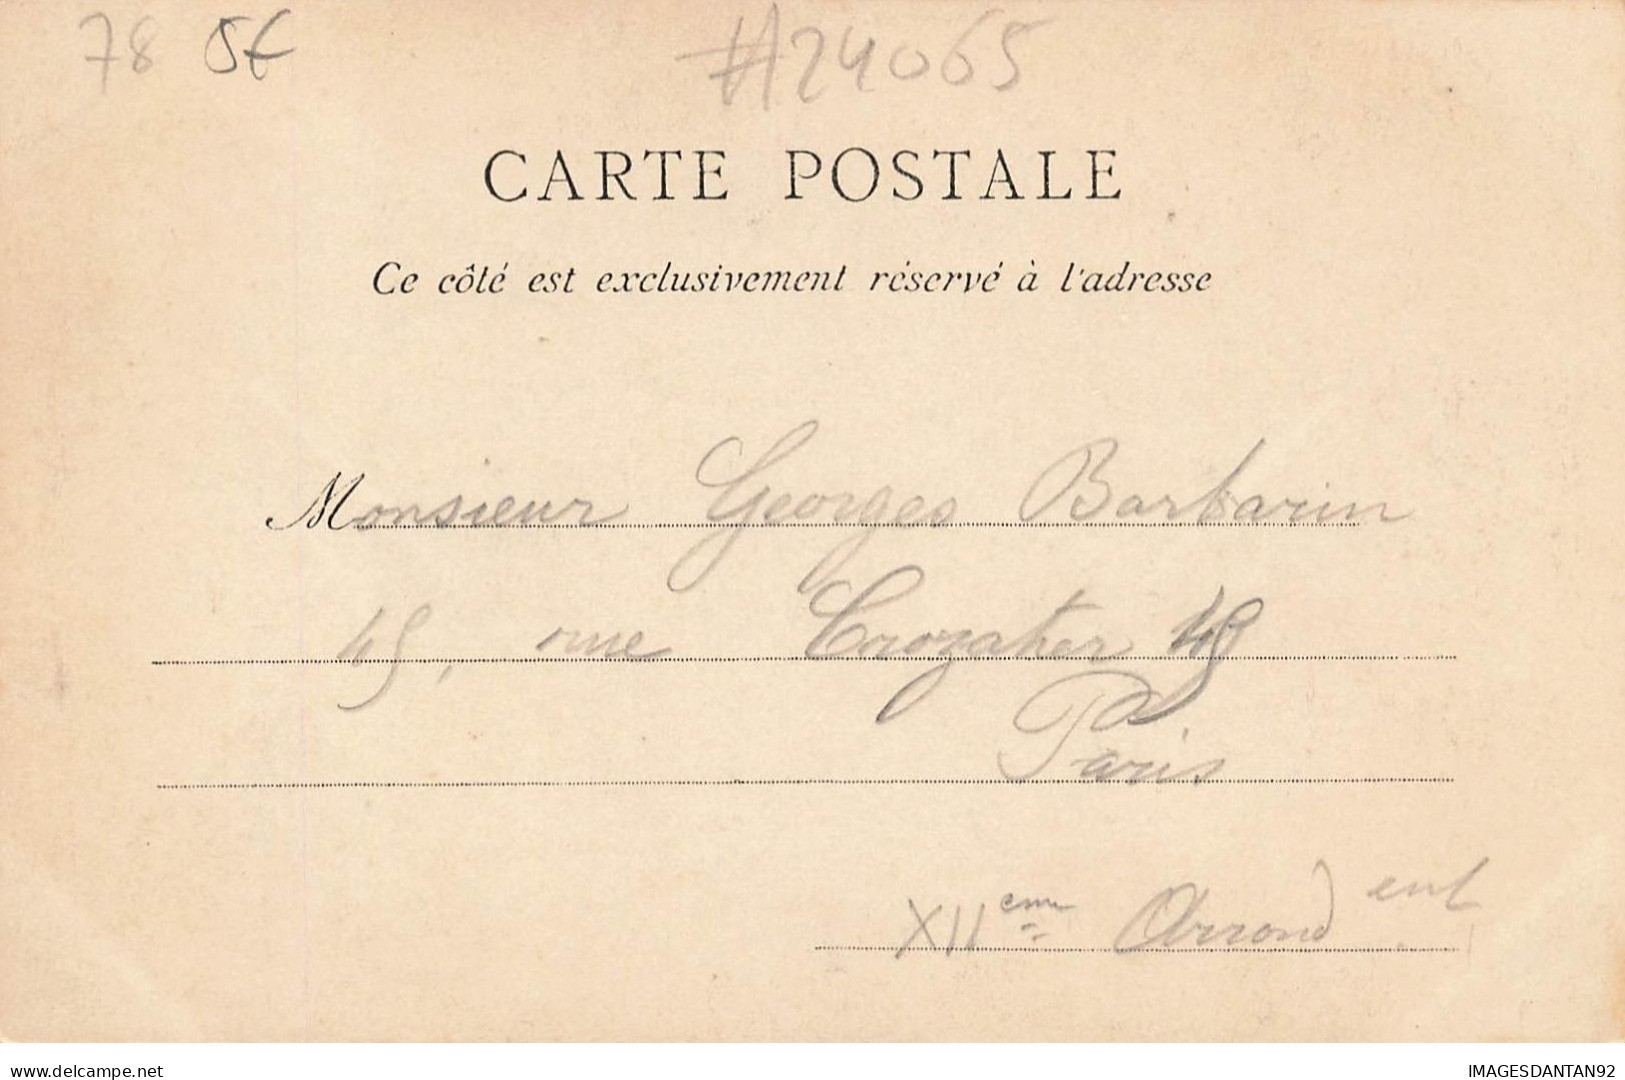 78 5€ #24065
CARTE POSTALE
Ce côté est exclusivement réservé à l'adresse
Monsieur Georges Barbarin
45, rue Crozatier 45
Paris
XIIeme Arrondent
www.delcampe.net IMAGESDANTAN92